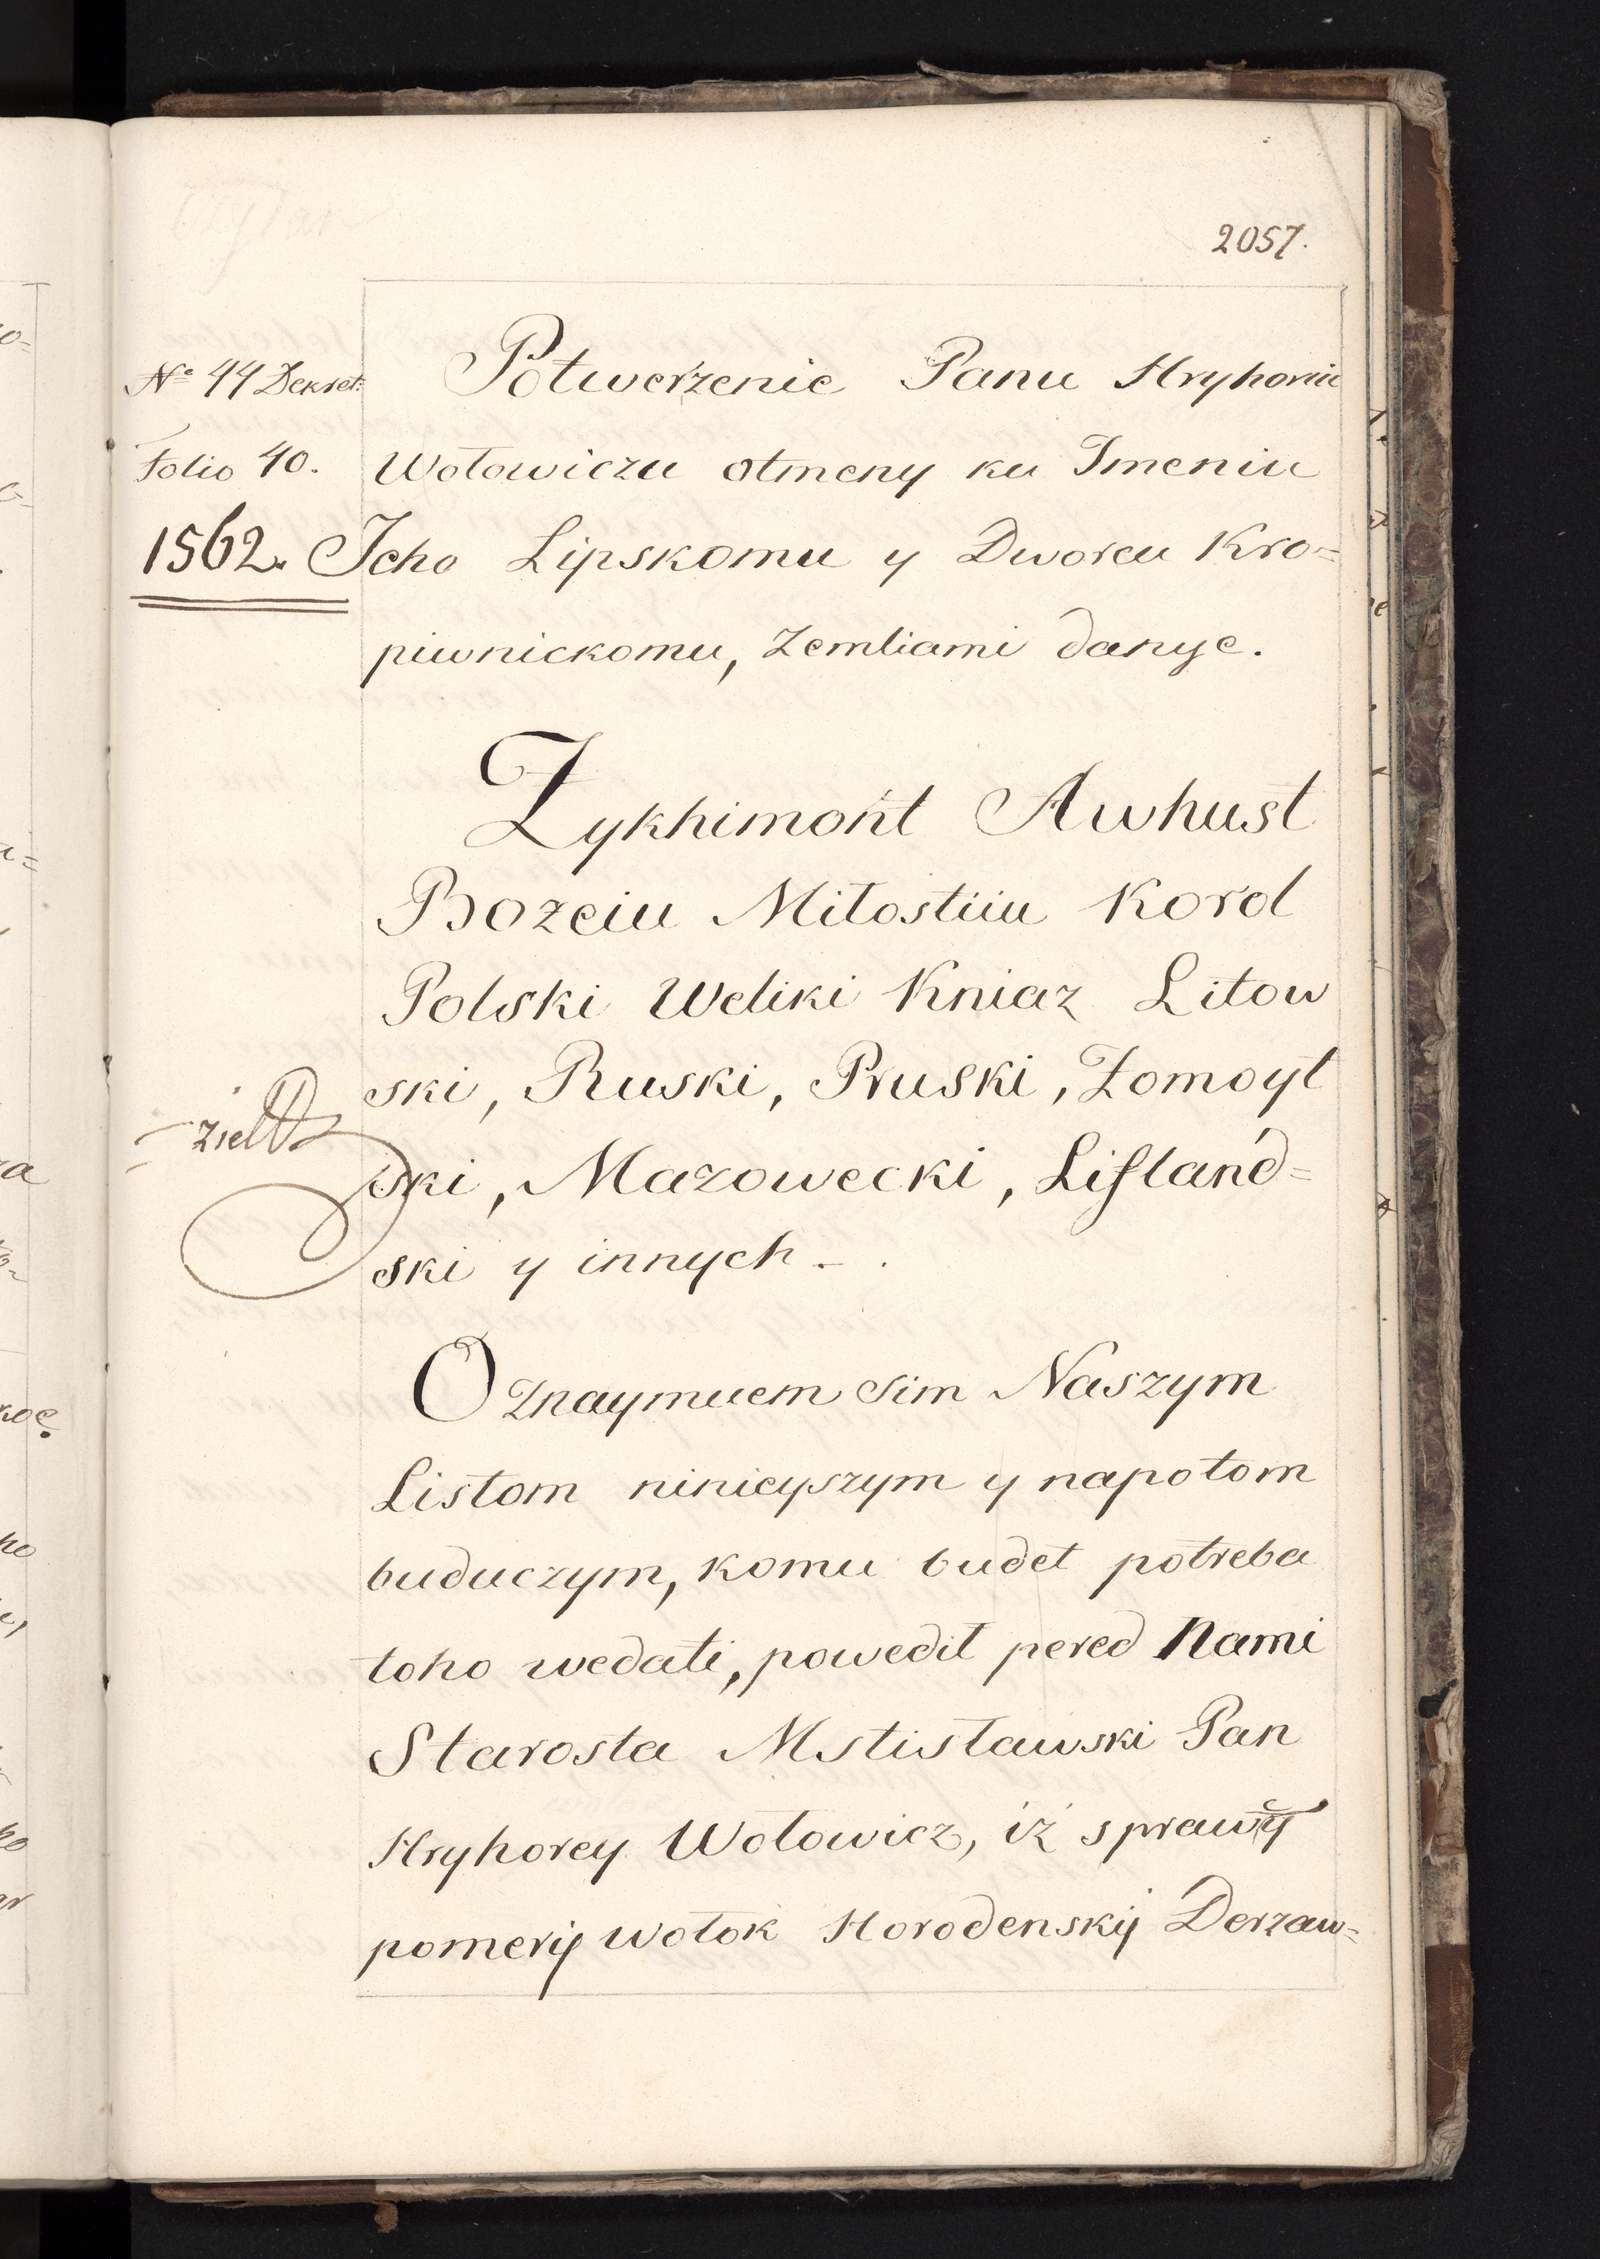 2057.
Potwerżenie Panu Hryhoriu
Wołowiczu otmeny ku Imeniu
Jeho Lipskomu y Dworcu Kro=
piwnickomu, Zemliami danyc.
Nº 44 Dekret:
Folio 40.
1562.
Zykhimont Awhust
Bozeiu Miłostiiu Korol
Polski Weliki Kniaz Litow
ski, Ruski, Pruski, Żomoyt
ski, Mazowecki, Lifland=
ski y innych -.
Oznaymuem sim Naszym
Listom ninieyszym y napotom
buduczym, komu budet potreba
toho wedati, powedił pered Nami
Starosta Mstisławski Pan
Hryhorey Wołowicz, iż sprawy
pomerij wołok Horodenskij Derzaw=